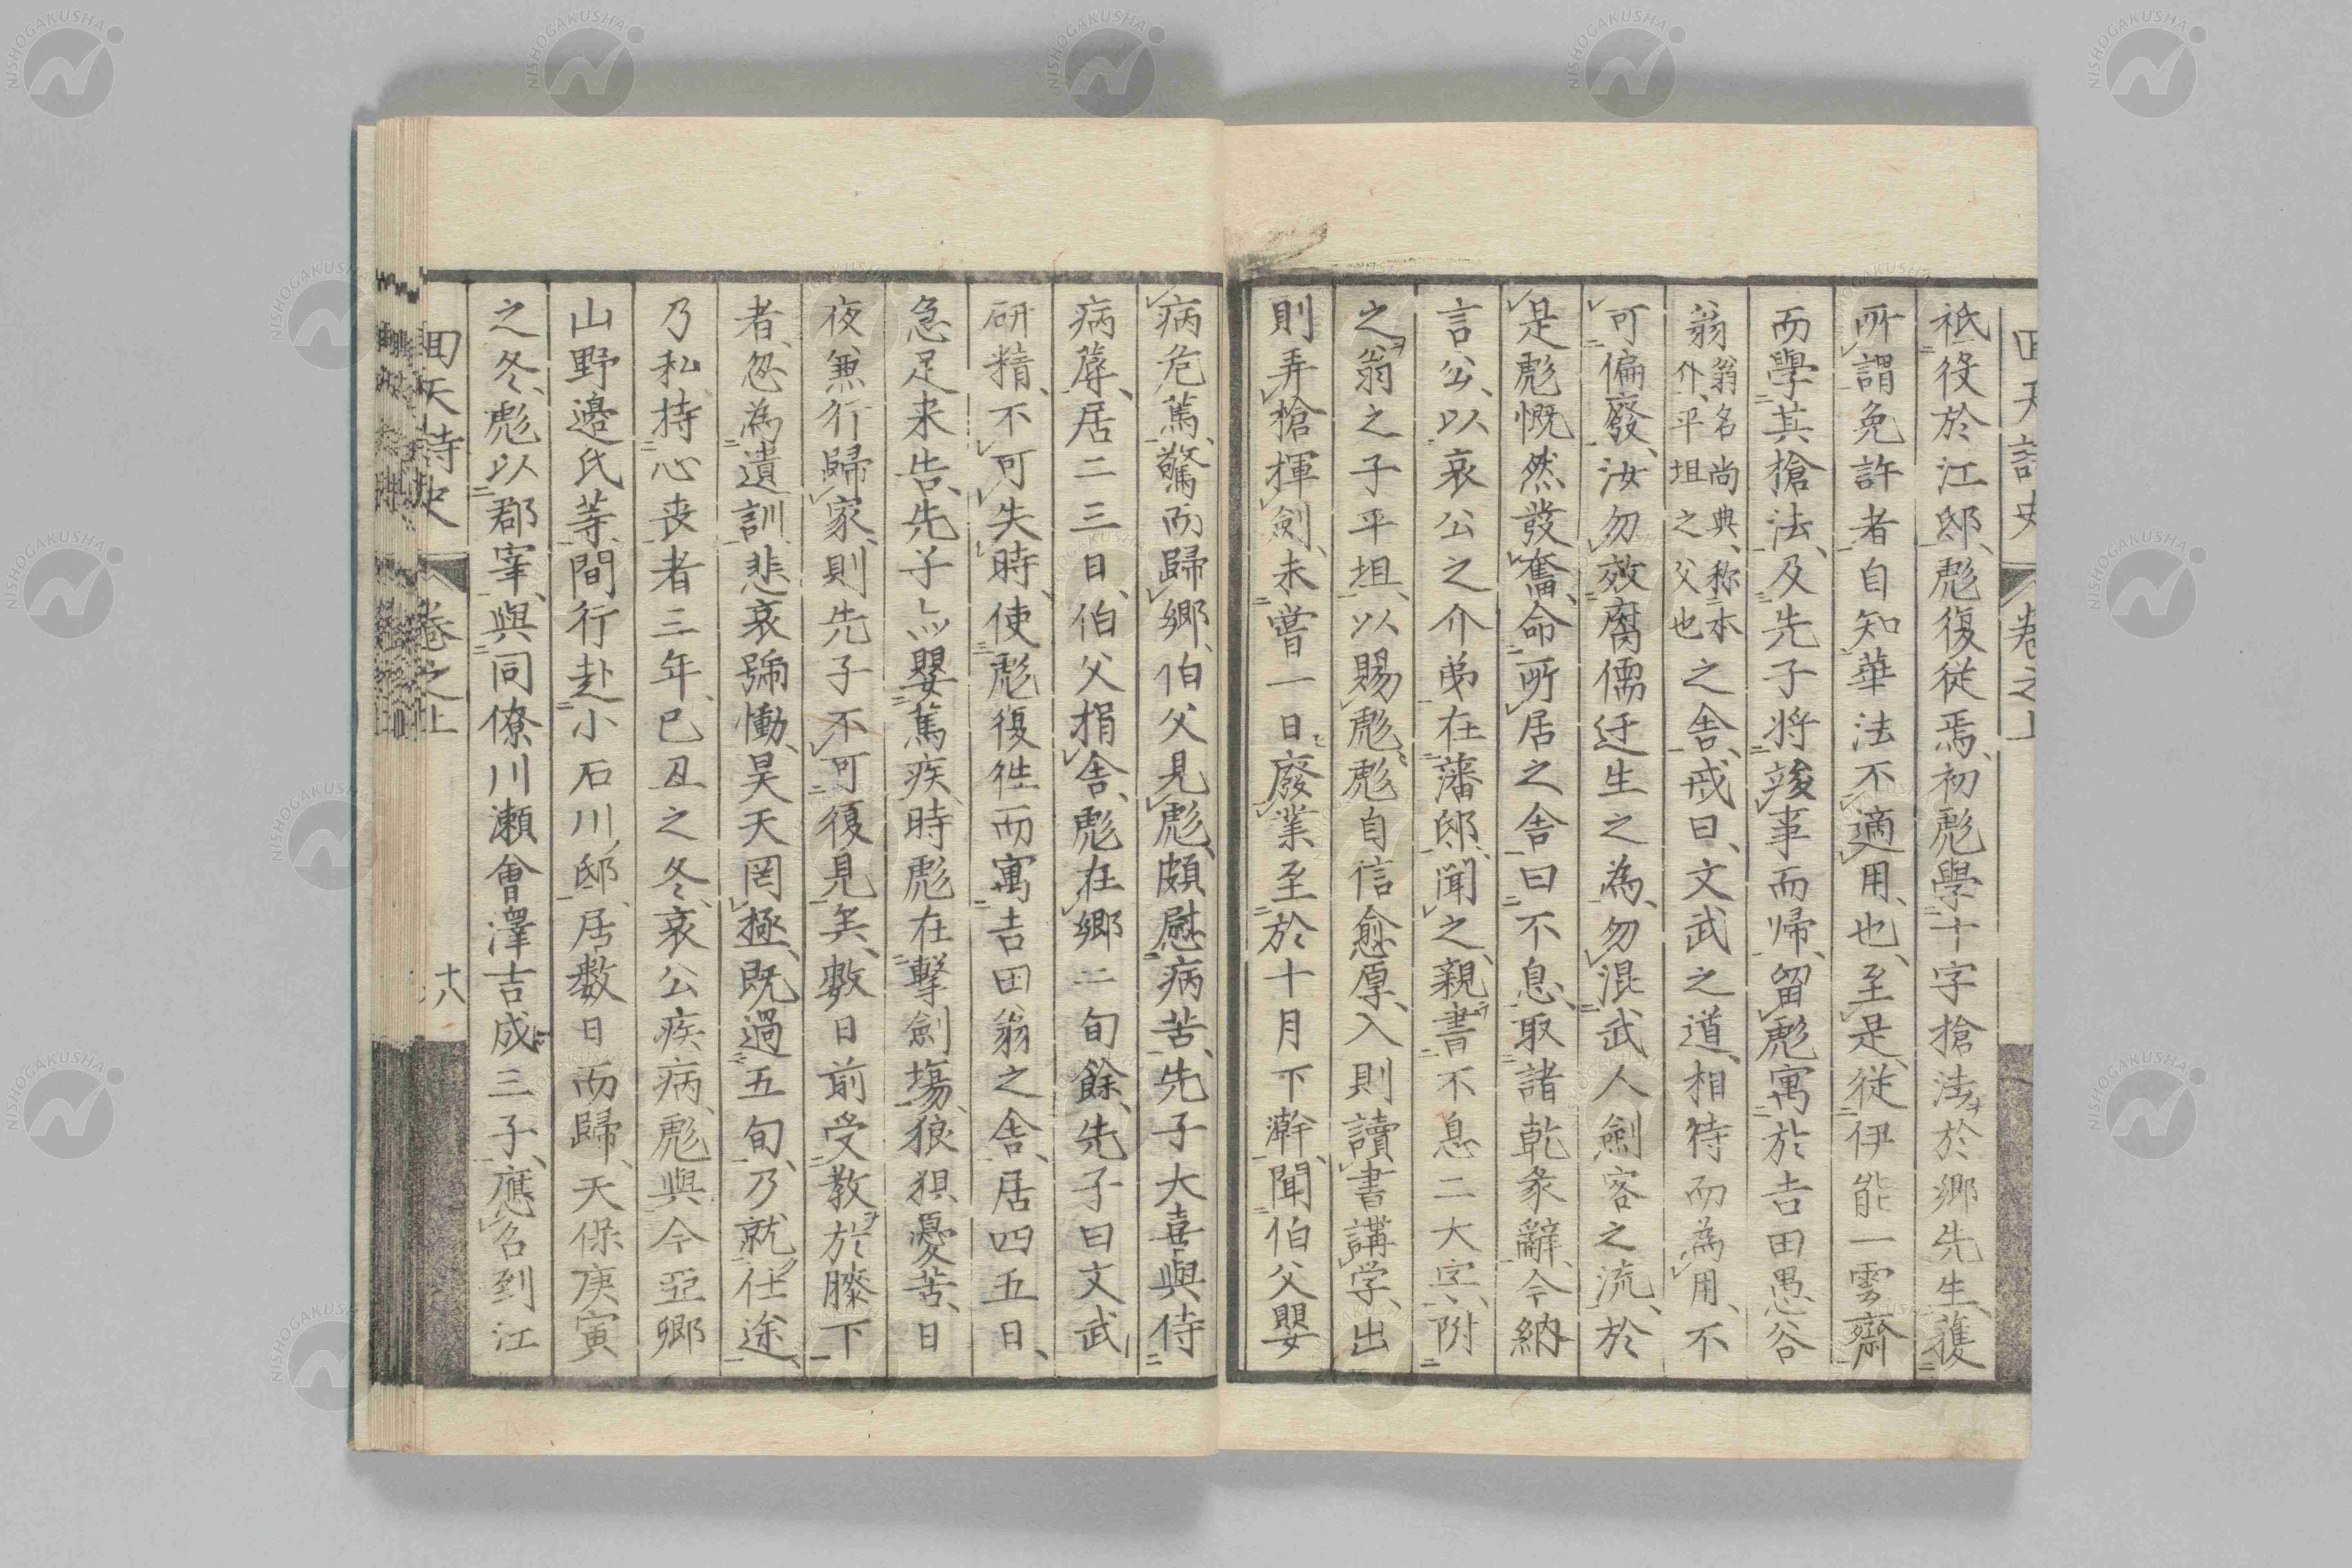 回天詩史 卷之上
祗役於江邸、彪復從焉、初彪學十字槍法於鄉先生、獲
所謂免許者、自知華法不適用也、至是、從伊能一雲齋
而學其槍法、及先子將竣事而帰、留彪寓於吉田愚谷
翁翁名尚典、称本介、平坦之父也之舍、戒曰、文武之道、相待而為用、不
可偏廢、汝勿效腐儒迂生之為、勿混武人劍客之流、於
是彪慨然發奮、命所居之舍曰不息、取諸乾象辭、今納
言公、以哀公之介弟在藩邸、聞之、親書不息二大字、附
之翁之子平坦、以賜彪、彪自信愈厚、入則讀書講学、出
則弄槍揮劍、未嘗一日廢業、至於十月下澣、聞伯父嬰
病危篤、驚而歸鄉、伯父見彪、頗慰病苦、先子大喜、與侍
病蓐、居二三日、伯父捐舍、彪在鄉二旬餘、先子曰、文武
研精、不可失時、使彪復徃而寓吉田翁之舍、居四五日、
急足来告、先子亦嬰篤疾、時彪在擊劍塲、狼狽憂苦、日
夜兼行歸家、則先子不可復見矣、數日前受教於膝下
者、忽為遺訓、悲哀號慟、昊天罔極、既過五旬、乃就仕途、
乃私持心喪者三年、已丑之冬、哀公疾病、彪與今亞卿
山野邉氏等、間行赴小石川邸、居数日而歸、天保庚寅
之冬、彪以郡宰、與同僚川瀬會澤吉成三子、應名到江
回天詩史 卷之上 十八